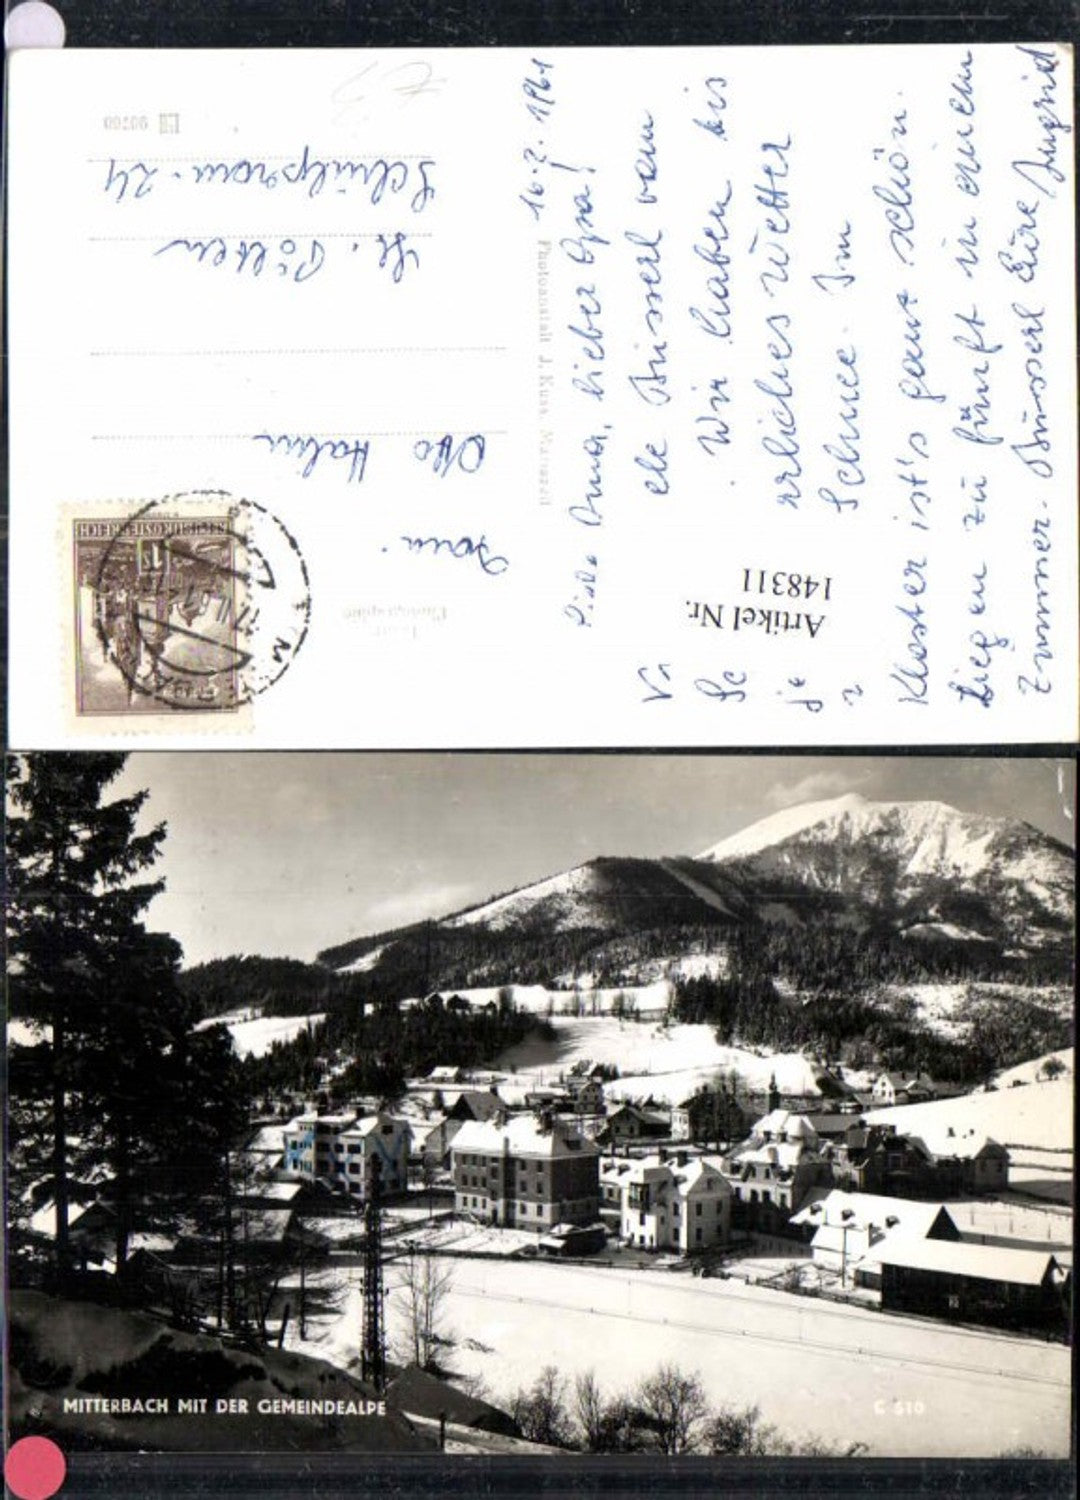 16. 2. 1961
Liebe Oma, lieber Opa!
ele Busserl vom
Wir haben bis
rrliches Wetter
Schnee. Im
Kloster ist's ganz schön.
Liegen zu fünft in einem
Zimmer. Busserl Eure Ingrid
Photoanstalt J. Kuss, Mariazell
Artikel Nr.
148311
Fam.
Otto Hahn
St. Pölten
24
REPUBLIK ÖSTERREICH
1 S
90700
MITTERBACH MIT DER GEMEINDEALPE
C 510